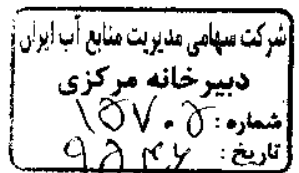 شرکت سهامی مدیریت منابع آب ایران
دبیرخانه مرکزی
شماره: ۱۵۷۰۵
تاریخ: